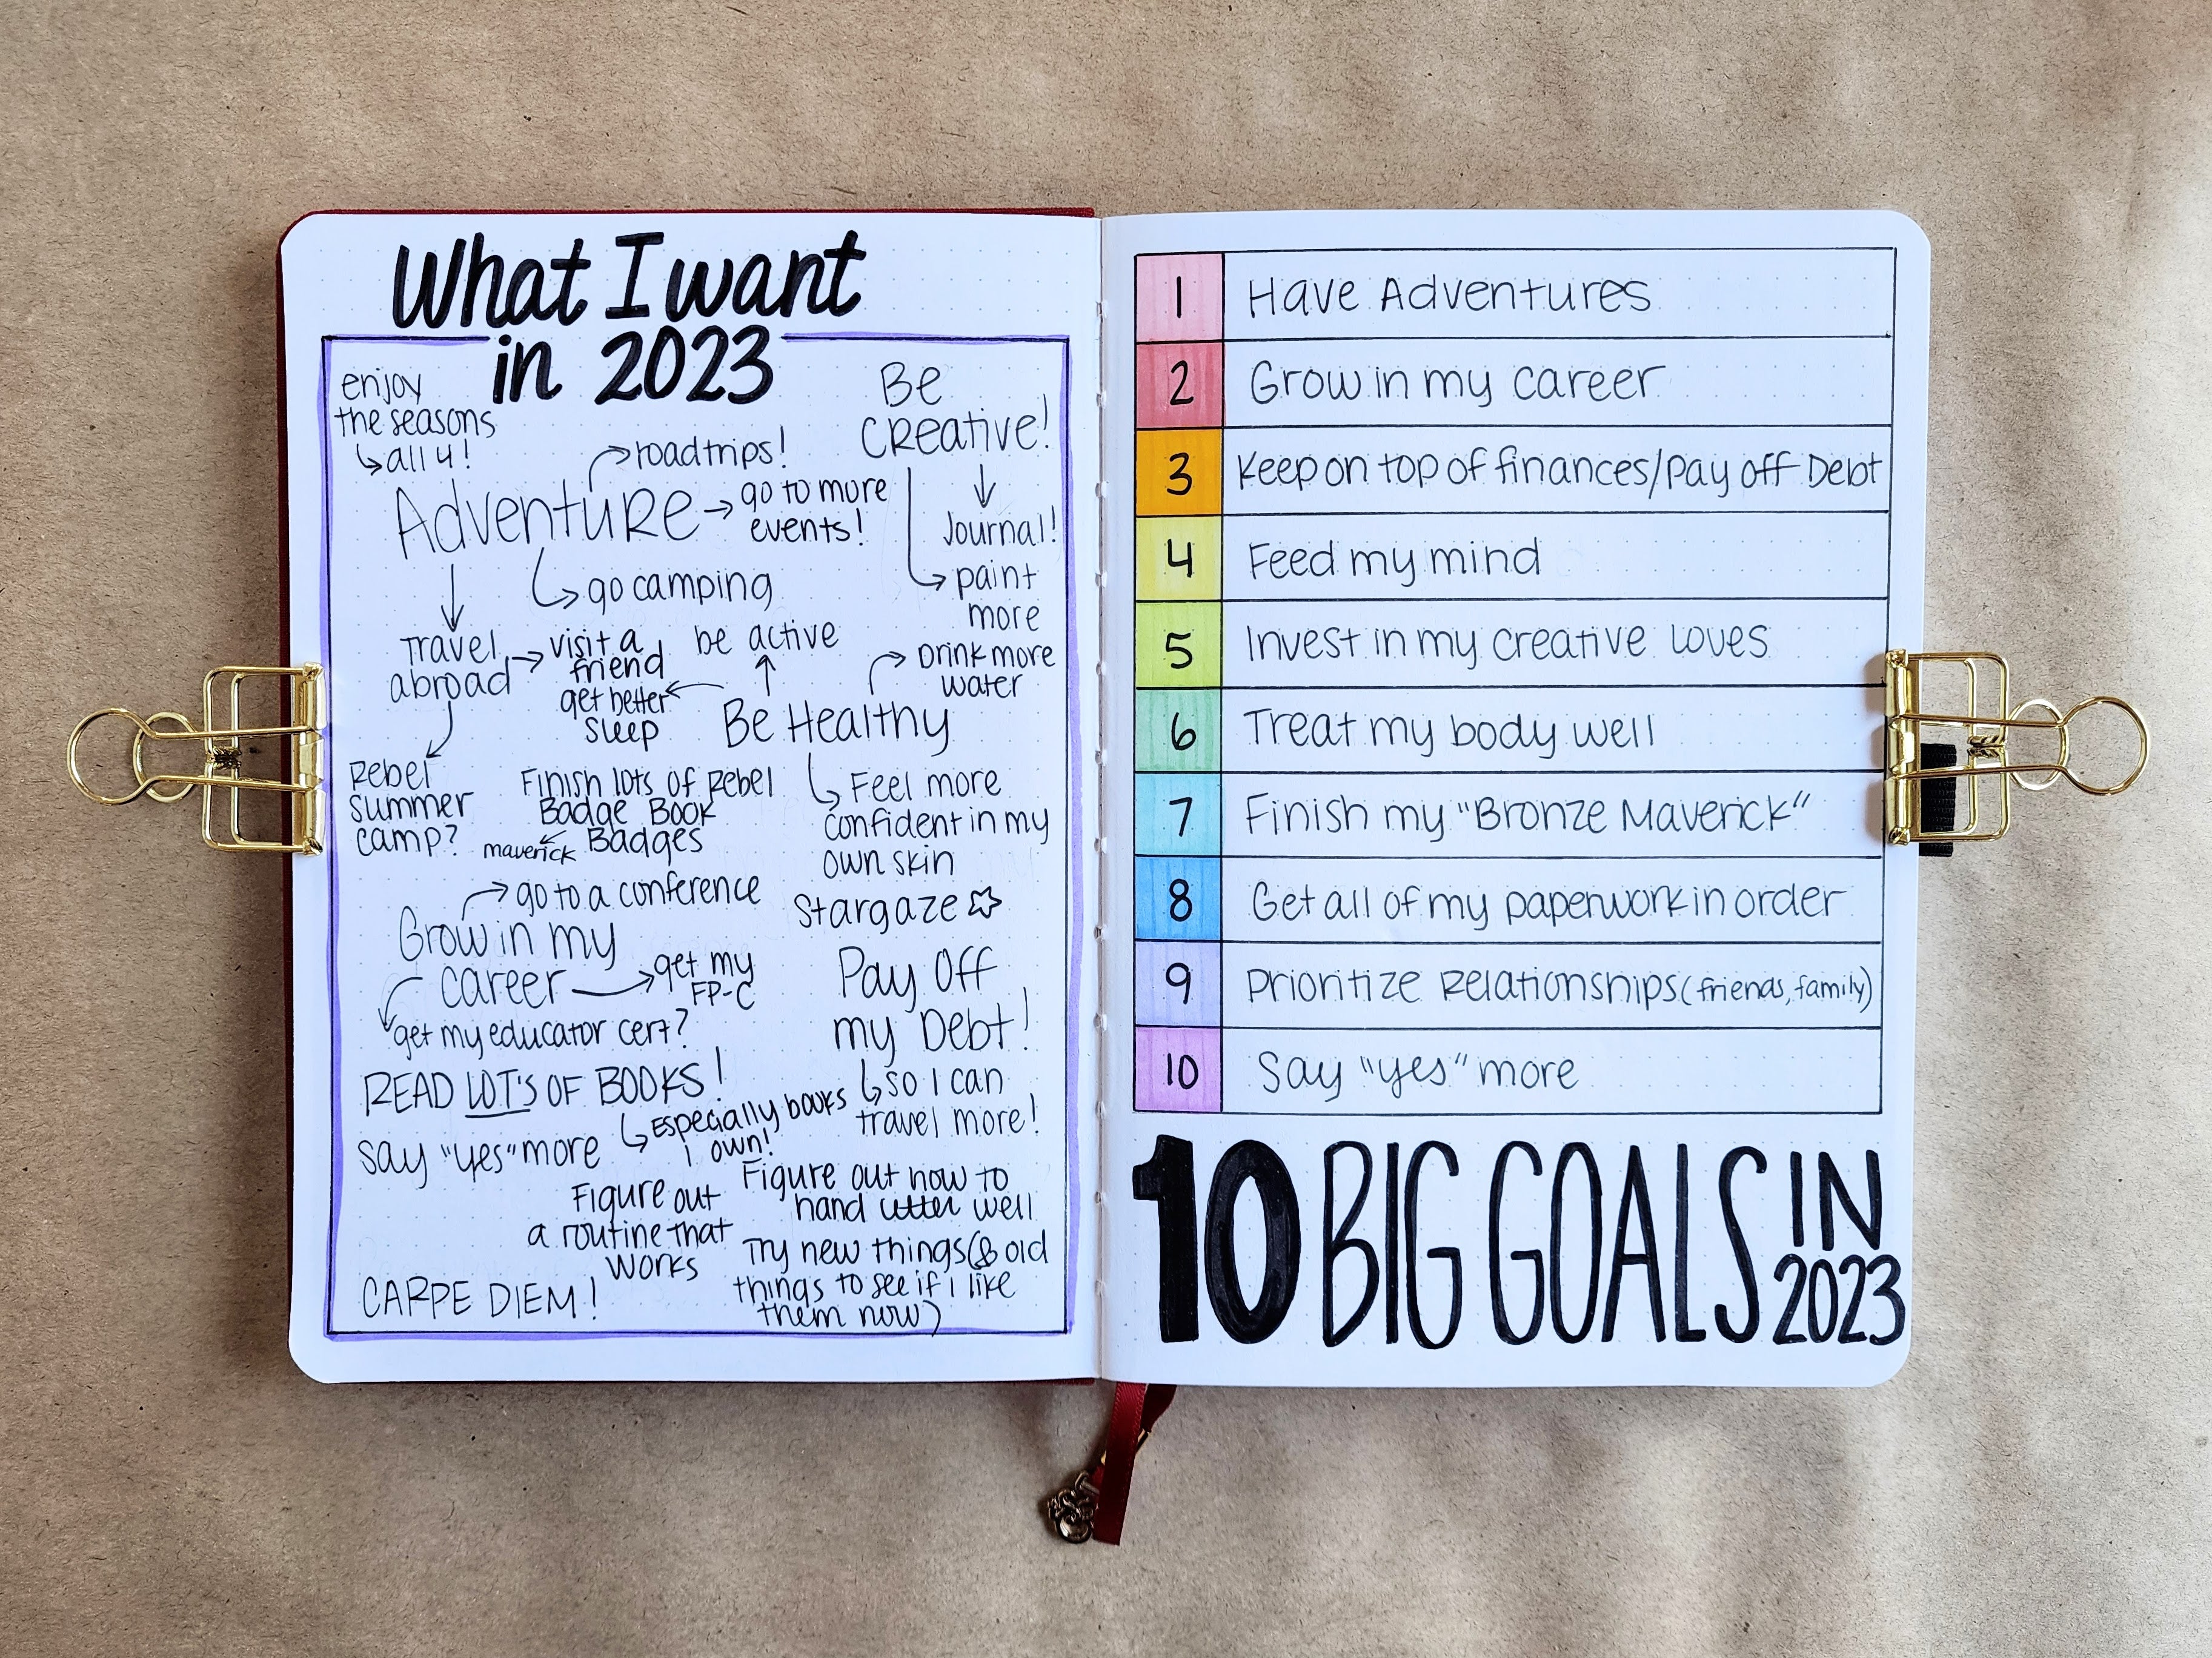 What I want
in 2023
enjoy
the seasons
all 4!
Adventure
roadtrips!
go to more
events!
go camping
Travel
abroad
visit a
friend
Rebel
summer
camp?
Be
Creative!
Journal!
paint
more
Be Healthy
be active
get better
sleep
Drink more
water
Feel more
confident in my
own skin
Finish lots of Rebel
Badge Book
Badges
maverick
Stargaze
Grow in my
career
go to a conference
get my
FP-C
get my educator cert?
Pay Off
my Debt!
so I can
travel more!
READ LOT'S OF BOOKS!
Especially books
I own!
say "yes" more
Figure out how to
hand letter well
Figure out
a routine that
works
Try new things (& old
things to see if I like
them now)
CARPE DIEM!
1 Have Adventures
2 Grow in my career
3 Keep on top of finances/Pay off Debt
4 Feed my mind
5 Invest in my creative loves
6 Treat my body well
7 Finish my "Bronze Maverick"
8 Get all of my paperwork in order
9 Prioritize Relationships (friends, family)
10 Say "yes" more
10 BIG GOALS IN
2023